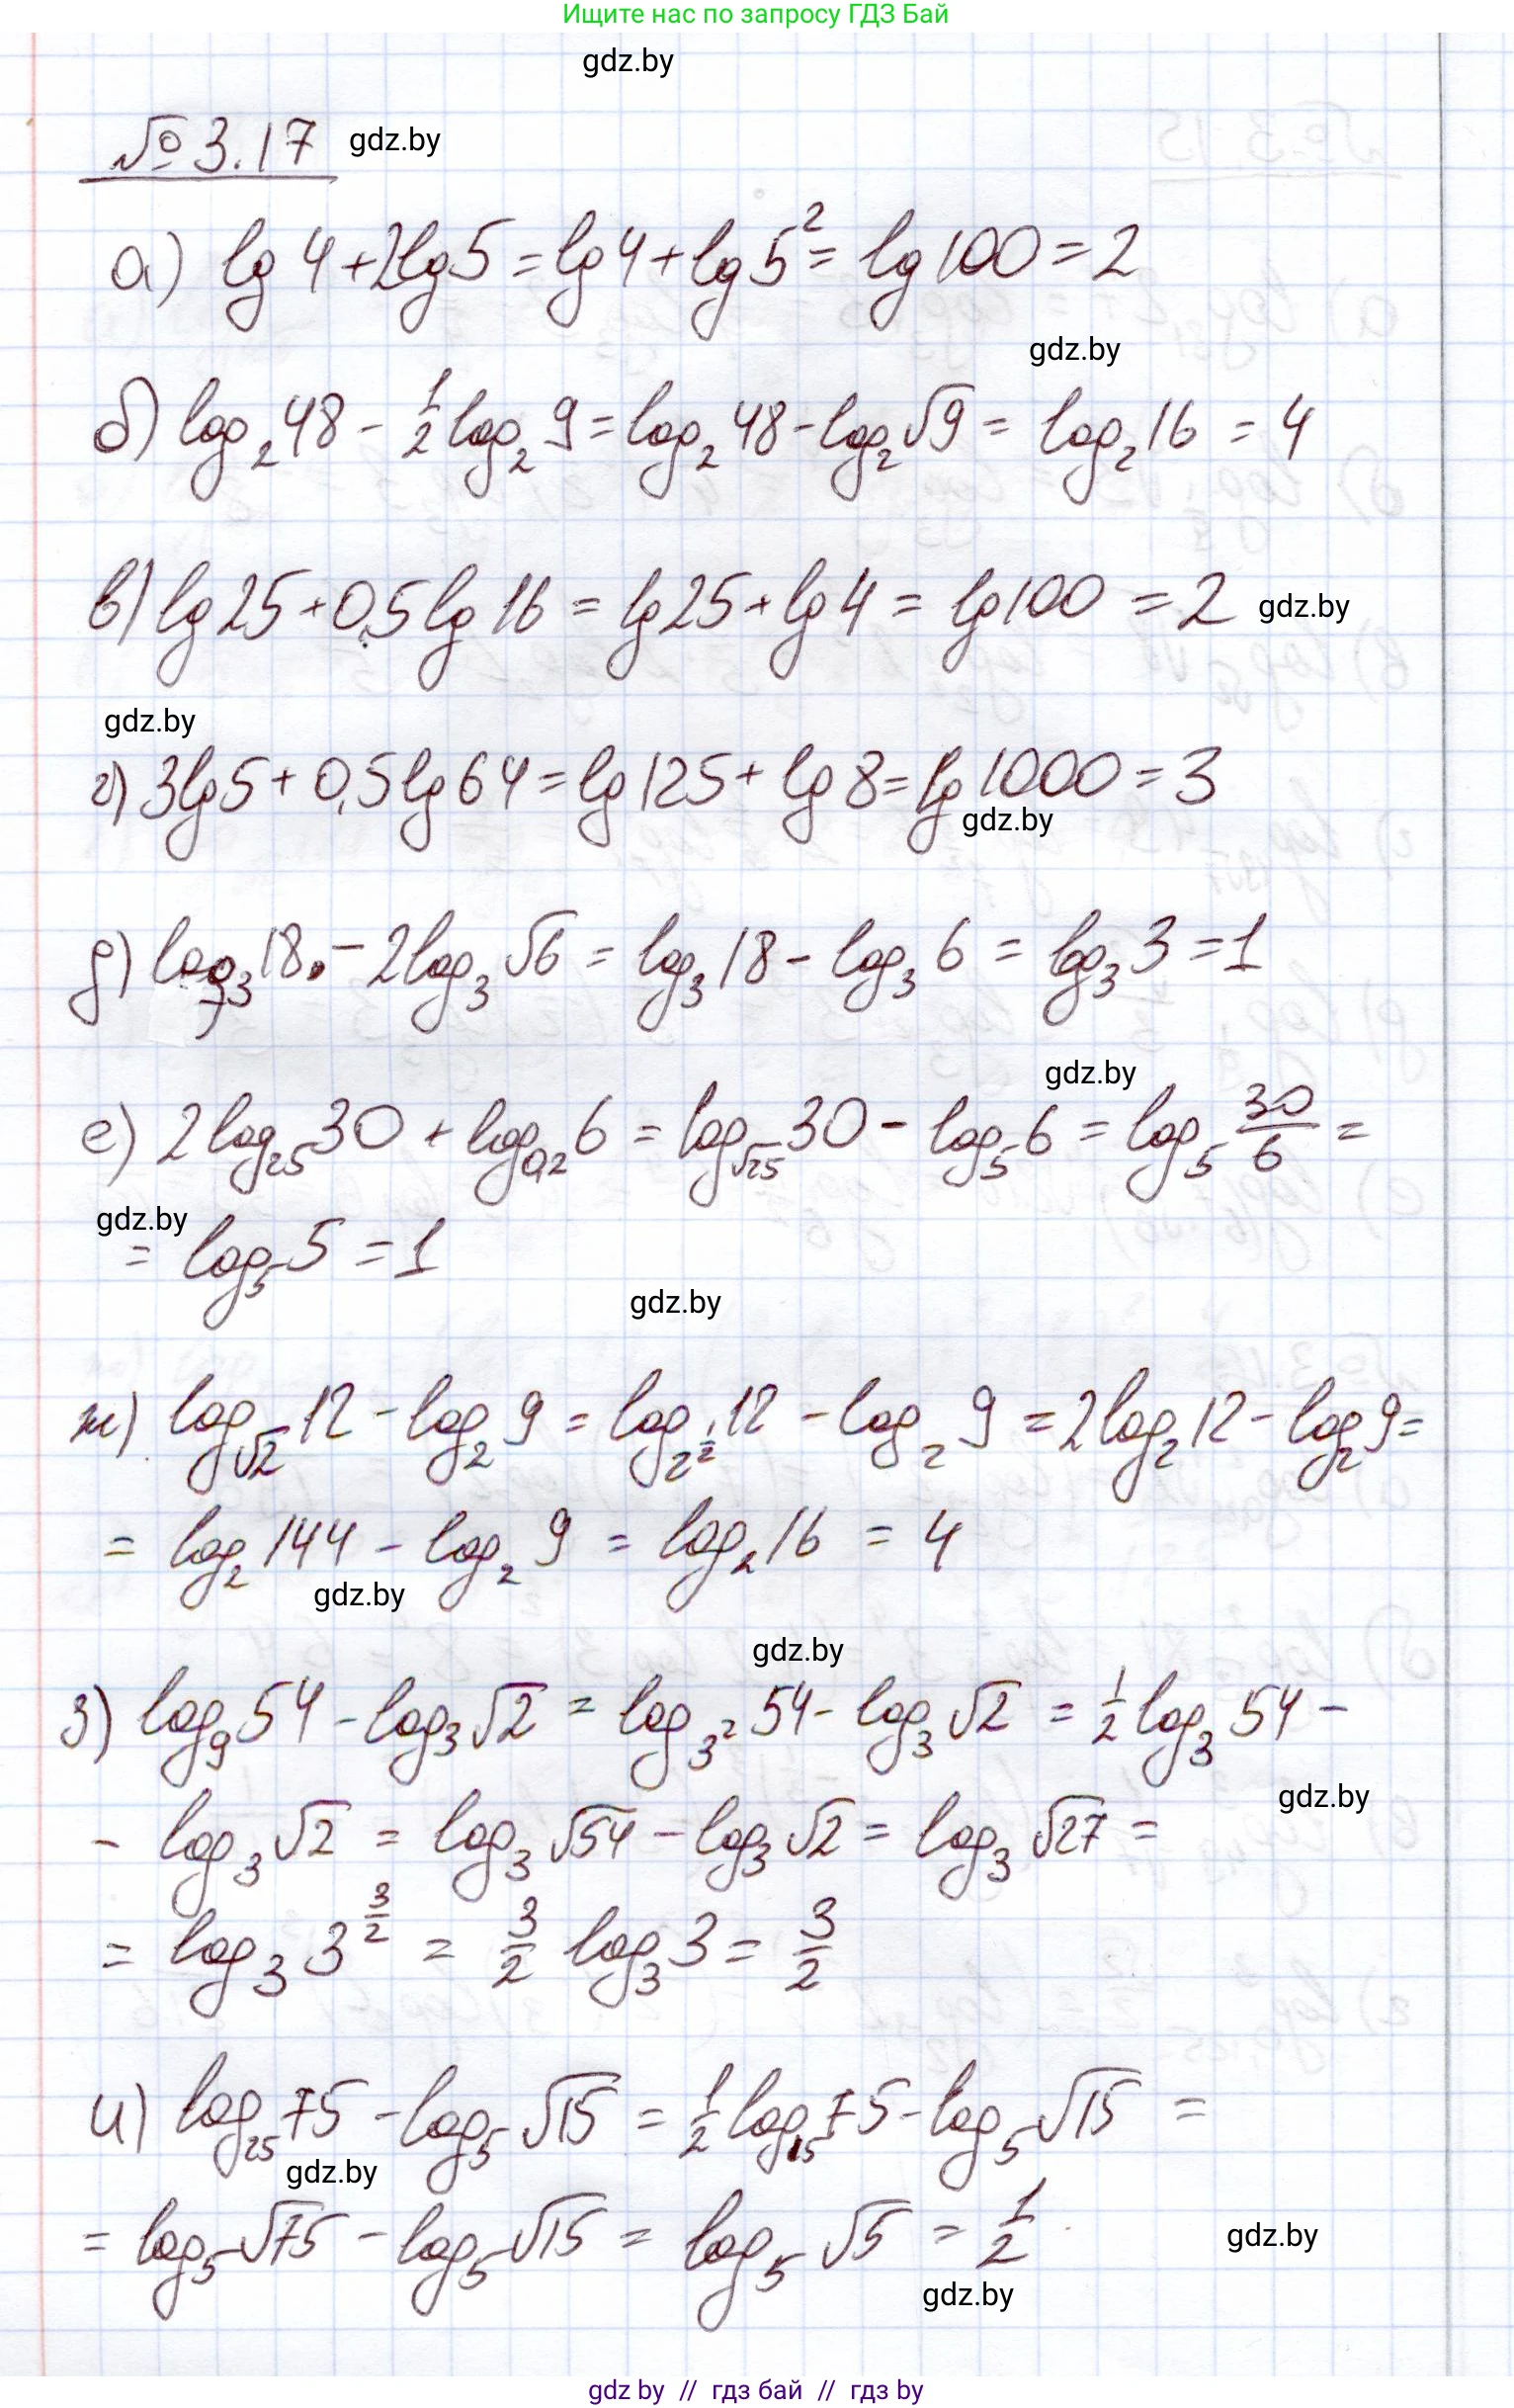 Ищите нас по запросу ГДЗ Бай
gdz.by
№ 3.17 gdz.by
а) lg 4 + 2lg 5 = lg 4 + lg 5² = lg 100 = 2
gdz.by
б) log₂ 48 - 1/2 log₂ 9 = log₂ 48 - log₂ √9 = log₂ 16 = 4
в) lg 25 + 0,5 lg 16 = lg 25 + lg 4 = lg 100 = 2 gdz.by
gdz.by
г) 3lg 5 + 0,5 lg 64 = lg 125 + lg 8 = lg 1000 = 3
gdz.by
д) log₃ 18 - 2log₃ √6 = log₃ 18 - log₃ 6 = log₃ 3 = 1
gdz.by
е) 2log₂₅ 30 + log_0,2 6 = log_√25 30 - log₅ 6 = log₅ 30/6 =
gdz.by
= log₅ 5 = 1
gdz.by
ж) log_√2 12 - log₂ 9 = log_2^(1/2) 12 - log₂ 9 = 2log₂ 12 - log₂ 9 =
= log₂ 144 - log₂ 9 = log₂ 16 = 4
gdz.by
gdz.by
з) log₉ 54 - log₃ √2 = log_3² 54 - log₃ √2 = 1/2 log₃ 54 -
gdz.by
- log₃ √2 = log₃ √54 - log₃ √2 = log₃ √27 =
= log₃ 3^(3/2) = 3/2 log₃ 3 = 3/2
и) log₂₅ 75 - log₅ √15 = 1/2 log₁₅ 75 - log₅ √15 =
gdz.by
= log₅ √75 - log₅ √15 = log₅ √5 = 1/2
gdz.by
gdz.by
gdz by // гдз бай // гдз by